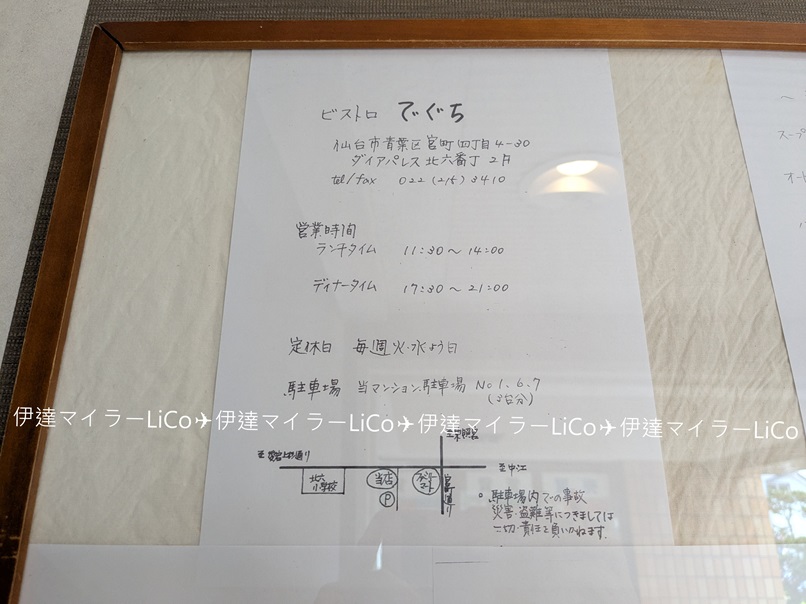 ビストロ でぐち
仙台市青葉区宮町四丁目4-30
ダイアパレス北六番丁 2F
tel/fax 022(215)3410
営業時間
ランチタイム 11:30～14:00
ディナータイム 17:30～21:00
定休日 毎週火・水よう日
駐車場 当マンション駐車場 No1.6.7
(3台分)
伊達マイラーLiCo✈伊達マイラーLiCo✈伊達マイラーLiCo✈伊達マイラーLiCo
至東照宮
至愛宕上杉通り
至中江
北六
小学校
当店
P
宮町通り
。駐車場内での事故
災害・盗難等につきましては
一切責任を負いかねます。
～
スープ
オード